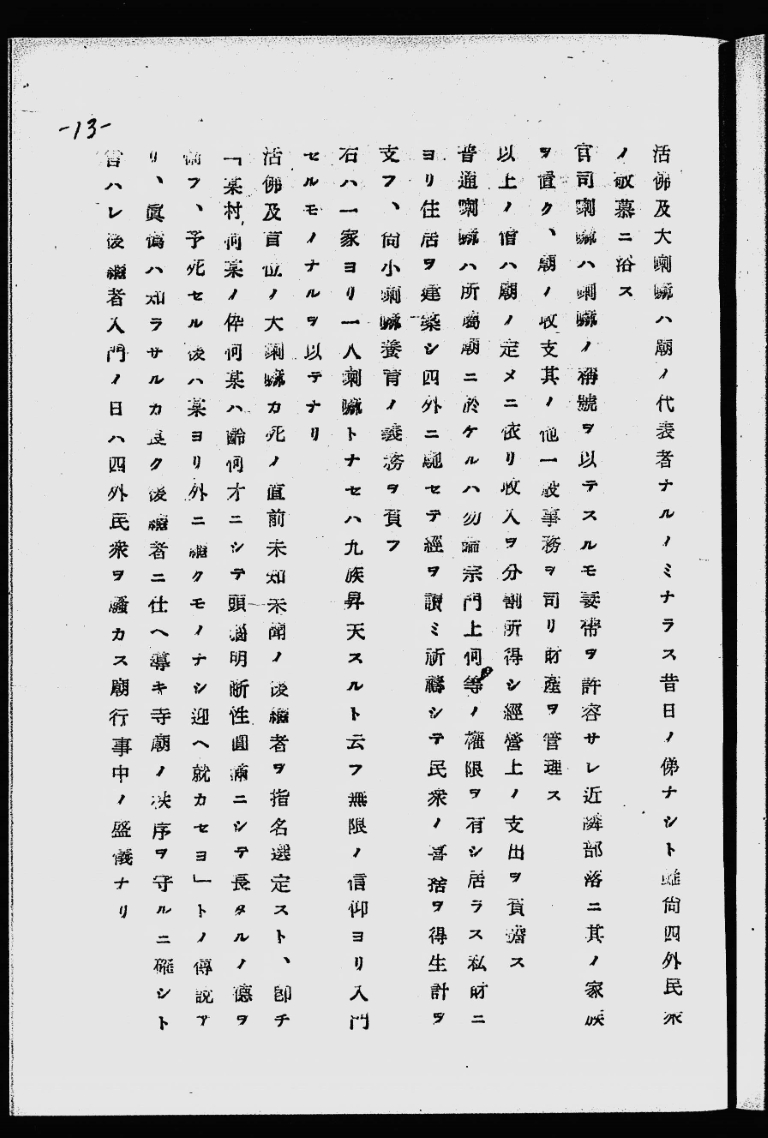 -13-
活佛及大喇嘛ハ廟ノ代表者ナルノミナラス昔日ノ俤ナシト雖尙四外民衆
ノ敬慕ニ浴ス
官司喇嘛ハ喇嘛ノ稱號ヲ以テスルモ妻帶ヲ許容サレ近隣部落ニ其ノ家族
ヲ置ク、廟ノ收支其ノ他一般事務ヲ司リ財產ヲ管理ス
以上ノ僧ハ廟ノ定メニ依リ收入ヲ分割所得シ經營上ノ支出ヲ負擔ス
普通喇嘛ハ所屬廟ニ於ケルハ勿論宗門上何等ノ權限ヲ有シ居ラス私財ニ
ヨリ住居ヲ建築シ四外ニ馳セテ經ヲ讀ミ祈禱シテ民衆ノ喜捨ヲ得生計ヲ
支フ、尙小喇嘛養育ノ義務ヲ負フ
右ハ一家ヨリ一人喇嘛トナセハ九族昇天スルト云フ無限ノ信仰ヨリ入門
セルモノナルヲ以テナリ
活佛及首位ノ大喇嘛カ死ノ直前未知未聞ノ後繼者ヲ指名選定スト、卽チ
「某村何某ノ倅何某ハ齡何才ニシテ頭腦明晰性圓滿ニシテ長タルノ德ヲ
備フ、予死セル後ハ某ヨリ外ニ繼クモノナシ迎ヘ就カセヨ」トノ傳說ア
リ、眞僞ハ知ラサルカ良ク後繼者ニ仕ヘ導キ寺廟ノ秩序ヲ守ルニ確シト
言ハレ後繼者入門ノ日ハ四外民衆ヲ騷カス廟行事中ノ盛儀ナリ